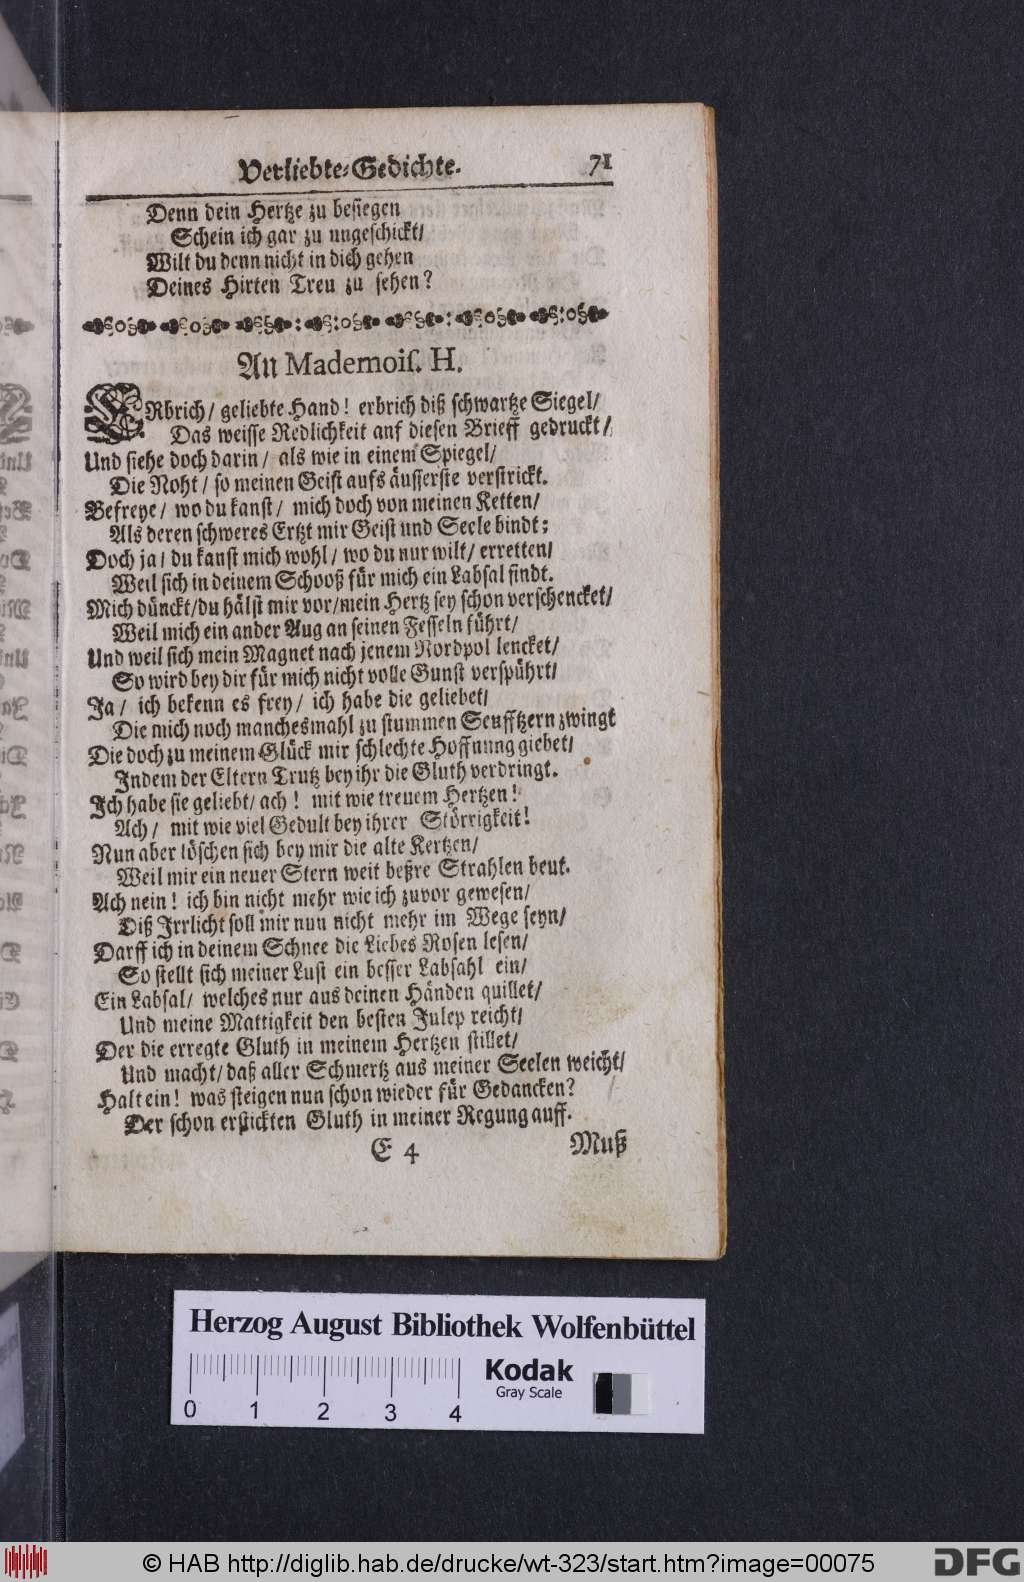 Verliebte-Gedichte. 71
Denn dein Hertze zu besiegen
Schein ich gar zu ungeschickt/
Wilt du denn nicht in dich gehen
Deines Hirten Treu zu sehen?
An Mademoiſ. H.
ERbrich/ geliebte Hand! erbrich diß schwartze Siegel/
Das weisse Redlichkeit auf diesen Brieff gedruckt/
Und siehe doch darin/ als wie in einem Spiegel/
Die Noht/ so meinen Geist aufs äusserste verstrickt.
Befreye/ wo du kanst/ mich doch von meinen Ketten/
Als deren schweres Ertzt mir Geist und Seele bindt;
Doch ja/ du kanst mich wohl/ wo du nur wilt/ erretten/
Weil sich in deinem Schooß für mich ein Labsal findt.
Mich dünckt/du hälst mir vor/mein Hertz sey schon verschencket/
Weil mich ein ander Aug an seinen Fesseln führt/
Und weil sich mein Magnet nach jenem Nordpol lencket/
So wird bey dir für mich nicht volle Gunst verspührt/
Ja/ ich bekenn es frey/ ich habe die geliebet/
Die mich noch manchesmahl zu stummen Seufftzern zwingt
Die doch zu meinem Glück mir schlechte Hoffnung giebet/
Indem der Eltern Trutz bey ihr die Gluth verdringt.
Ich habe sie geliebt/ ach! mit wie treuem Hertzen!
Ach/ mit wie viel Gedult bey ihrer Störrigkeit!
Nun aber löschen sich bey mir die alte Kertzen/
Weil mir ein neuer Stern weit beßre Strahlen beut.
Ach nein! ich bin nicht mehr wie ich zuvor gewesen/
Diß Irrlicht soll mir nun nicht mehr im Wege seyn/
Darff ich in deinem Schnee die Liebes Rosen lesen/
So stellt sich meiner Lust ein besser Labsahl ein/
Ein Labsal/ welches nur aus deinen Händen quillet/
Und meine Mattigkeit den besten Julep reicht/
Der die erregte Gluth in meinem Hertzen stillet/
Und macht/ daß aller Schmertz aus meiner Seelen weicht/
Halt ein! was steigen nun schon wieder für Gedancken?
Der schon erstickten Gluth in meiner Regung auff.
E 4 Muß
Herzog August Bibliothek Wolfenbüttel
Kodak
Gray Scale
0 1 2 3 4
© HAB http://diglib.hab.de/drucke/wt-323/start.htm?image=00075
DFG